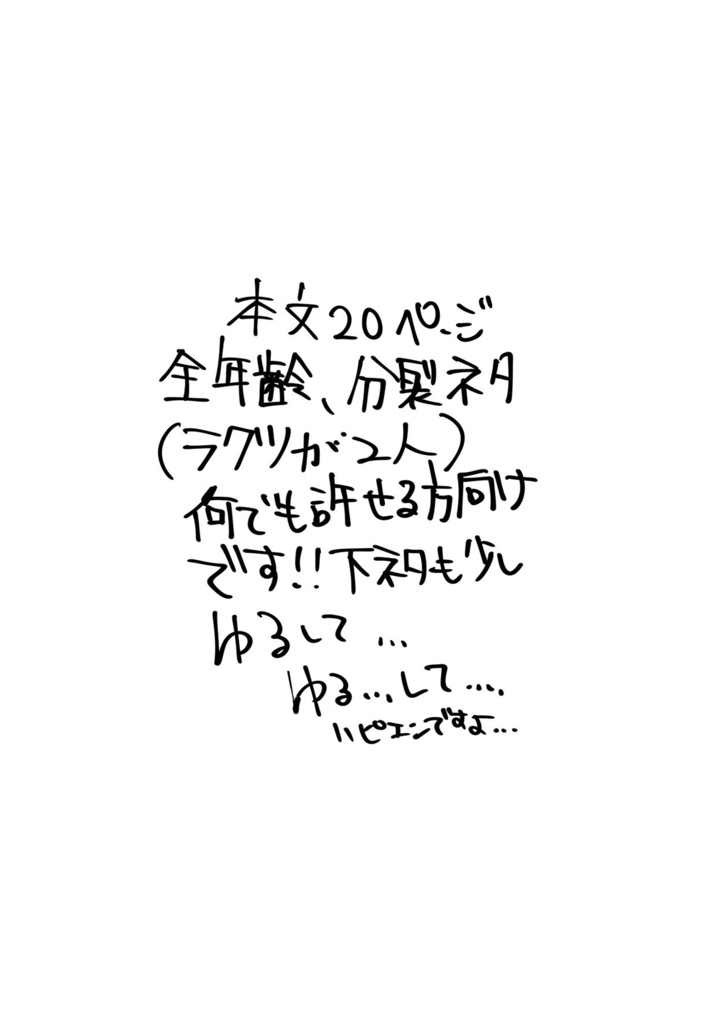 本文20ページ
全年齢、分製ネタ
(ラグツが2人)
何でも許せる方向け
です!!下ネタも少し
ゆるして...
ゆる...して....
ハピエンですよ...